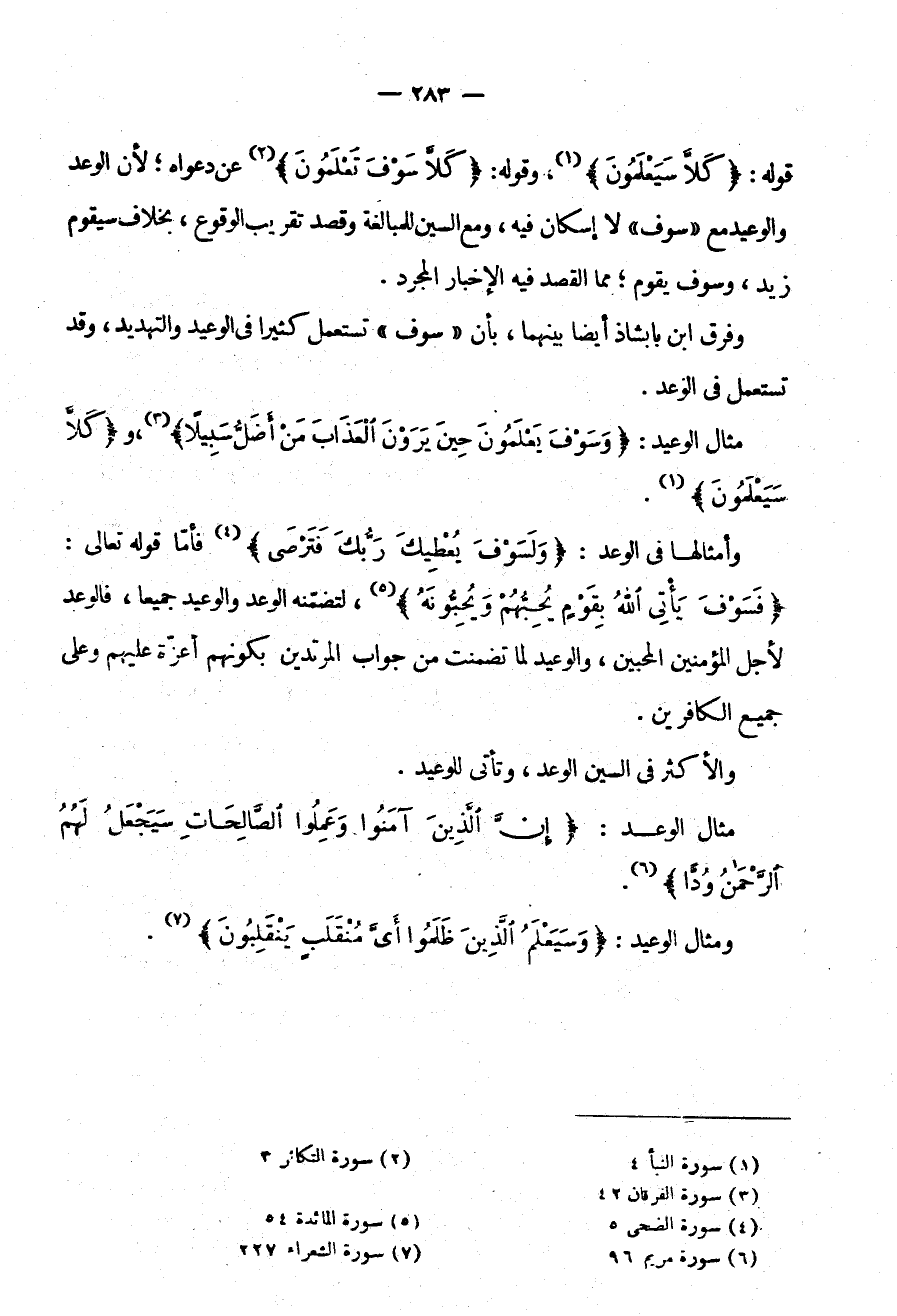 — ٢٨٣ —
قوله : ﴿ كَلاَّ سَيَعْلَمُونَ ﴾(١)، وقوله: ﴿ كَلاَّ سَوْفَ تَعْلَمُونَ ﴾(٢) عن دعواه ؛ لأن الوعد
والوعيد مع «سوف» لا إسكان فيه ، ومع السين للمبالغة وقصد تقريب الوقوع ، بخلاف سيقوم
زيد ، وسوف يقوم ؛ مما القصد فيه الإخبار المجرد .
وفرق ابن بابشاذ أيضا بينهما ، بأن « سوف » تستعمل كثيرا فى الوعيد والتهديد ، وقد
تستعمل فى الوعد .
مثال الوعيد : ﴿ وَسَوْفَ يَعْلَمُونَ حِينَ يَرَوْنَ ٱلْعَذَابَ مَنْ أَضَلُّ سَبِيلًا﴾(٣)،و ﴿ كَلاَّ
سَيَعْلَمُونَ ﴾ (١) .
وأمثالهـا فى الوعد : ﴿ وَلَسَوْفَ يُعْطِيكَ رَبُّكَ فَتَرْضَى ﴾(٤) فأمّا قوله تعالى :
﴿ فَسَوْفَ يَأْتِى ٱللهُ بِقَوْمٍ يُحِبُّهُمْ وَيُحِبُّونَهُ ﴾(٥) ، لتضمّنه الوعد والوعيد جميعا ، فالوعد
لأجل المؤمنين المحبين ، والوعيد لما تضمنت من جواب المرتدين بكونهم أعزّة عليهم وعلى
جميع الكافرين .
والأكثر فى السين الوعد ، وتأتى للوعيد .
مثال الوعــد : ﴿ إِنَّ ٱلَّذِينَ آمَنُوا وَعَمِلُوا ٱلصَّالِحَاتِ سَيَجْعَلُ لَهُمُ
ٱلرَّحْمَٰنُ وُدًّا ﴾ (٦).
ومثال الوعيد : ﴿ وَسَيَعْلَمُ ٱلَّذِينَ ظَلَمُوا أَىَّ مُنْقَلَبٍ يَنْقَلِبُونَ ﴾ (٧) .
(١) سورة النبأ ٤ (٢) سورة التكاثر ٣
(٣) سورة الفرقان ٤٢
(٤) سورة الضحى ٥ (٥) سورة المائدة ٥٤
(٦) سورة مريم ٩٦ (٧) سورة الشعراء ٢٢٧